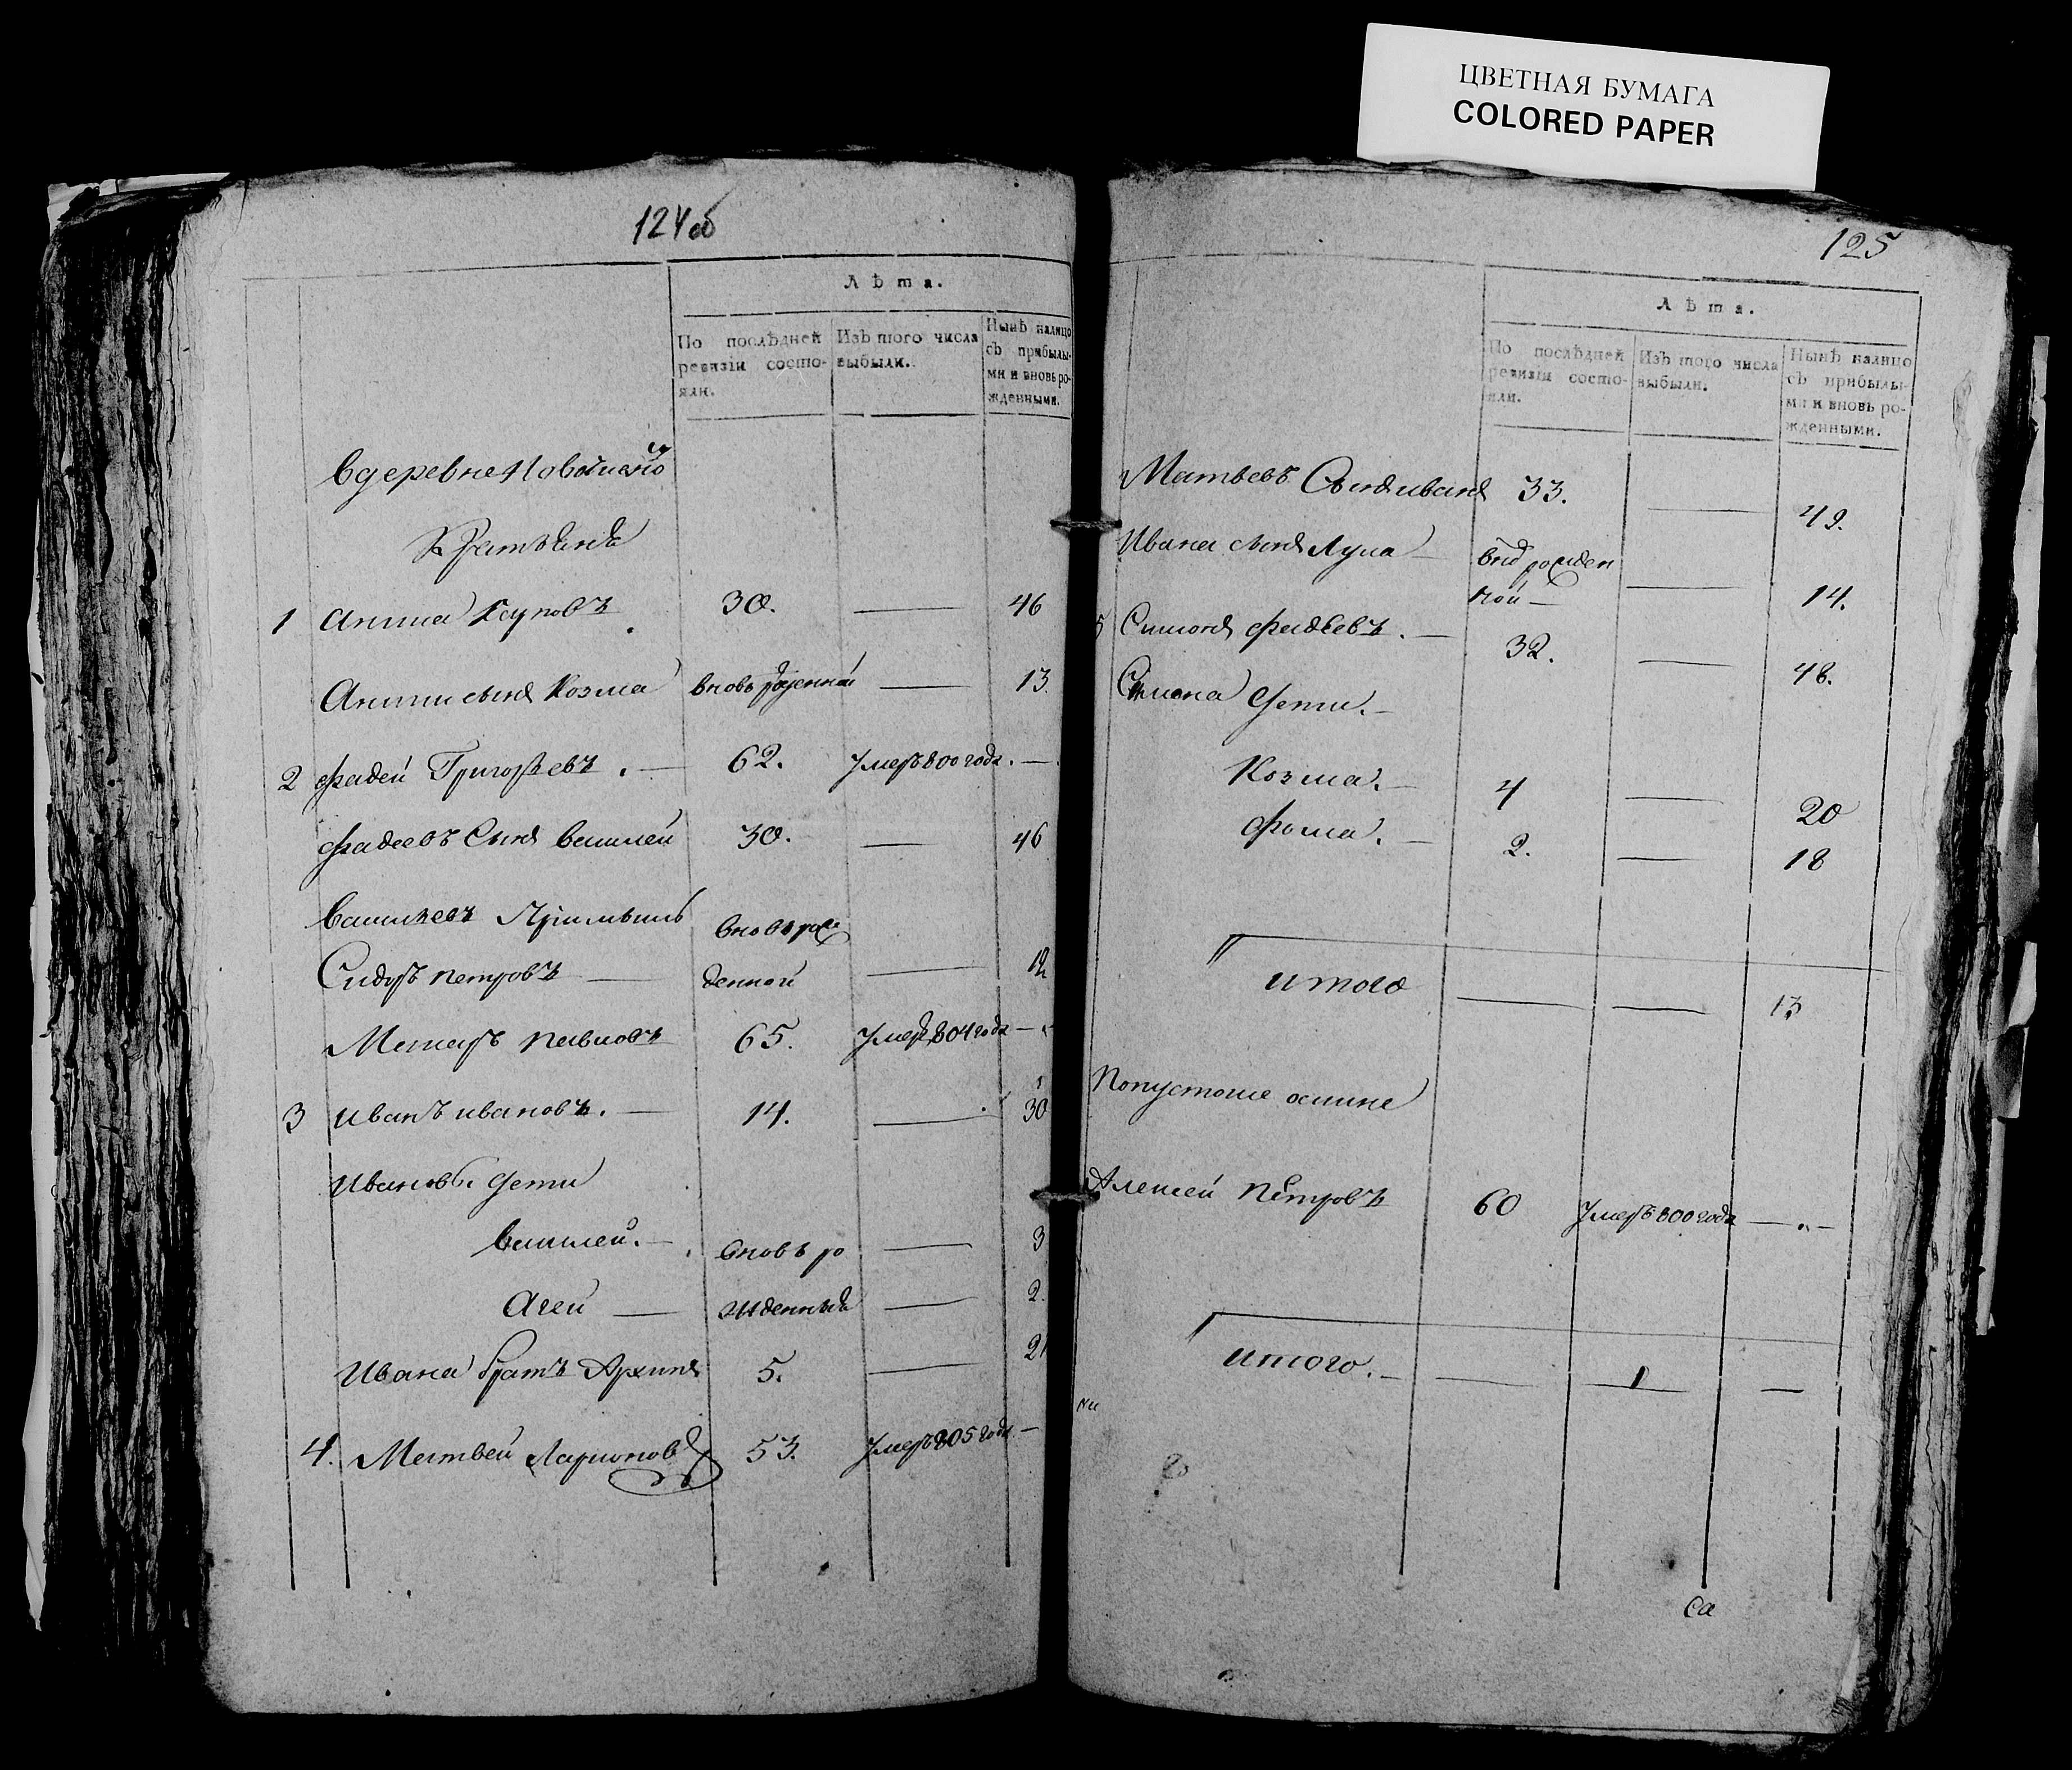 ЦВЕТНАЯ БУМАГА
COLORED PAPER
124об
Лѣта.
По послѣдней ревизіи состо-яли.
Изъ того числа выбыли.
Нынѣ налицо съ прибылы-ми и вновь ро-жденными.
вдеревне
Крестьянъ
1 Анипа 30. — 46
Анипи сынъ Козма вновь рожденной — 13.
2 Фадей Григорьевъ. — 62. Умеръ 800 года. —
Фадеевъ Сынъ василей 30. — 46
васильевъ Приимышь вновь рож
Сидоръ петровъ — денной — 12
павловъ 65. Умеръ 804 года —
3 иванъ ивановъ. — 14. — 30
Ивановы дети
василей. — вновь ро — 3
Агей — жденныя — 2.
Ивана братъ Архипъ 5. — 21
4. Матвей Ларионовъ 53. Умеръ 805 года —
125
Лѣта.
По послѣдней ревизіи состо-яли.
Изъ того числа выбыли.
Нынѣ налицо съ прибылы-ми и вновь ро-жденными.
Матвеевъ Сынъ иванъ 33. — 49.
Ивана сынъ Лука — внов рожден
ной — — 14.
5 Симонъ Фадеевъ. — 32. — 48.
Симона Дети. —
Козма. — 4 — 20
Фома. — 2. — 18
итого — — 13
Попустоше осиине
Алексей Петровъ 60 Умеръ 800 года —
итого. — — 1 —
са